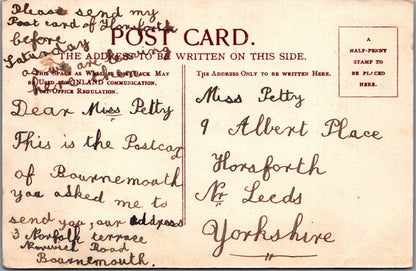 Please send my
Post card of Horsforth
before
Saturday
as we are leaving
here
POST CARD.
THE ADDRESS TO BE WRITTEN ON THIS SIDE.
THIS SPACE AS WELL AS THE BACK MAY
BE USED FOR INLAND COMMUNICATION.
POST OFFICE REGULATION.
Dear Miss Petty
This is the Postcard
of Bournemouth
you asked me to
send you, our address
3 Norfolk terrace
Norwich Road
Bournemouth.
THE ADDRESS ONLY TO BE WRITTEN HERE.
A
HALF-PENNY
STAMP TO
BE PLACED
HERE.
Miss Petty
9 Albert Place
Horsforth
Nr Leeds
Yorkshire